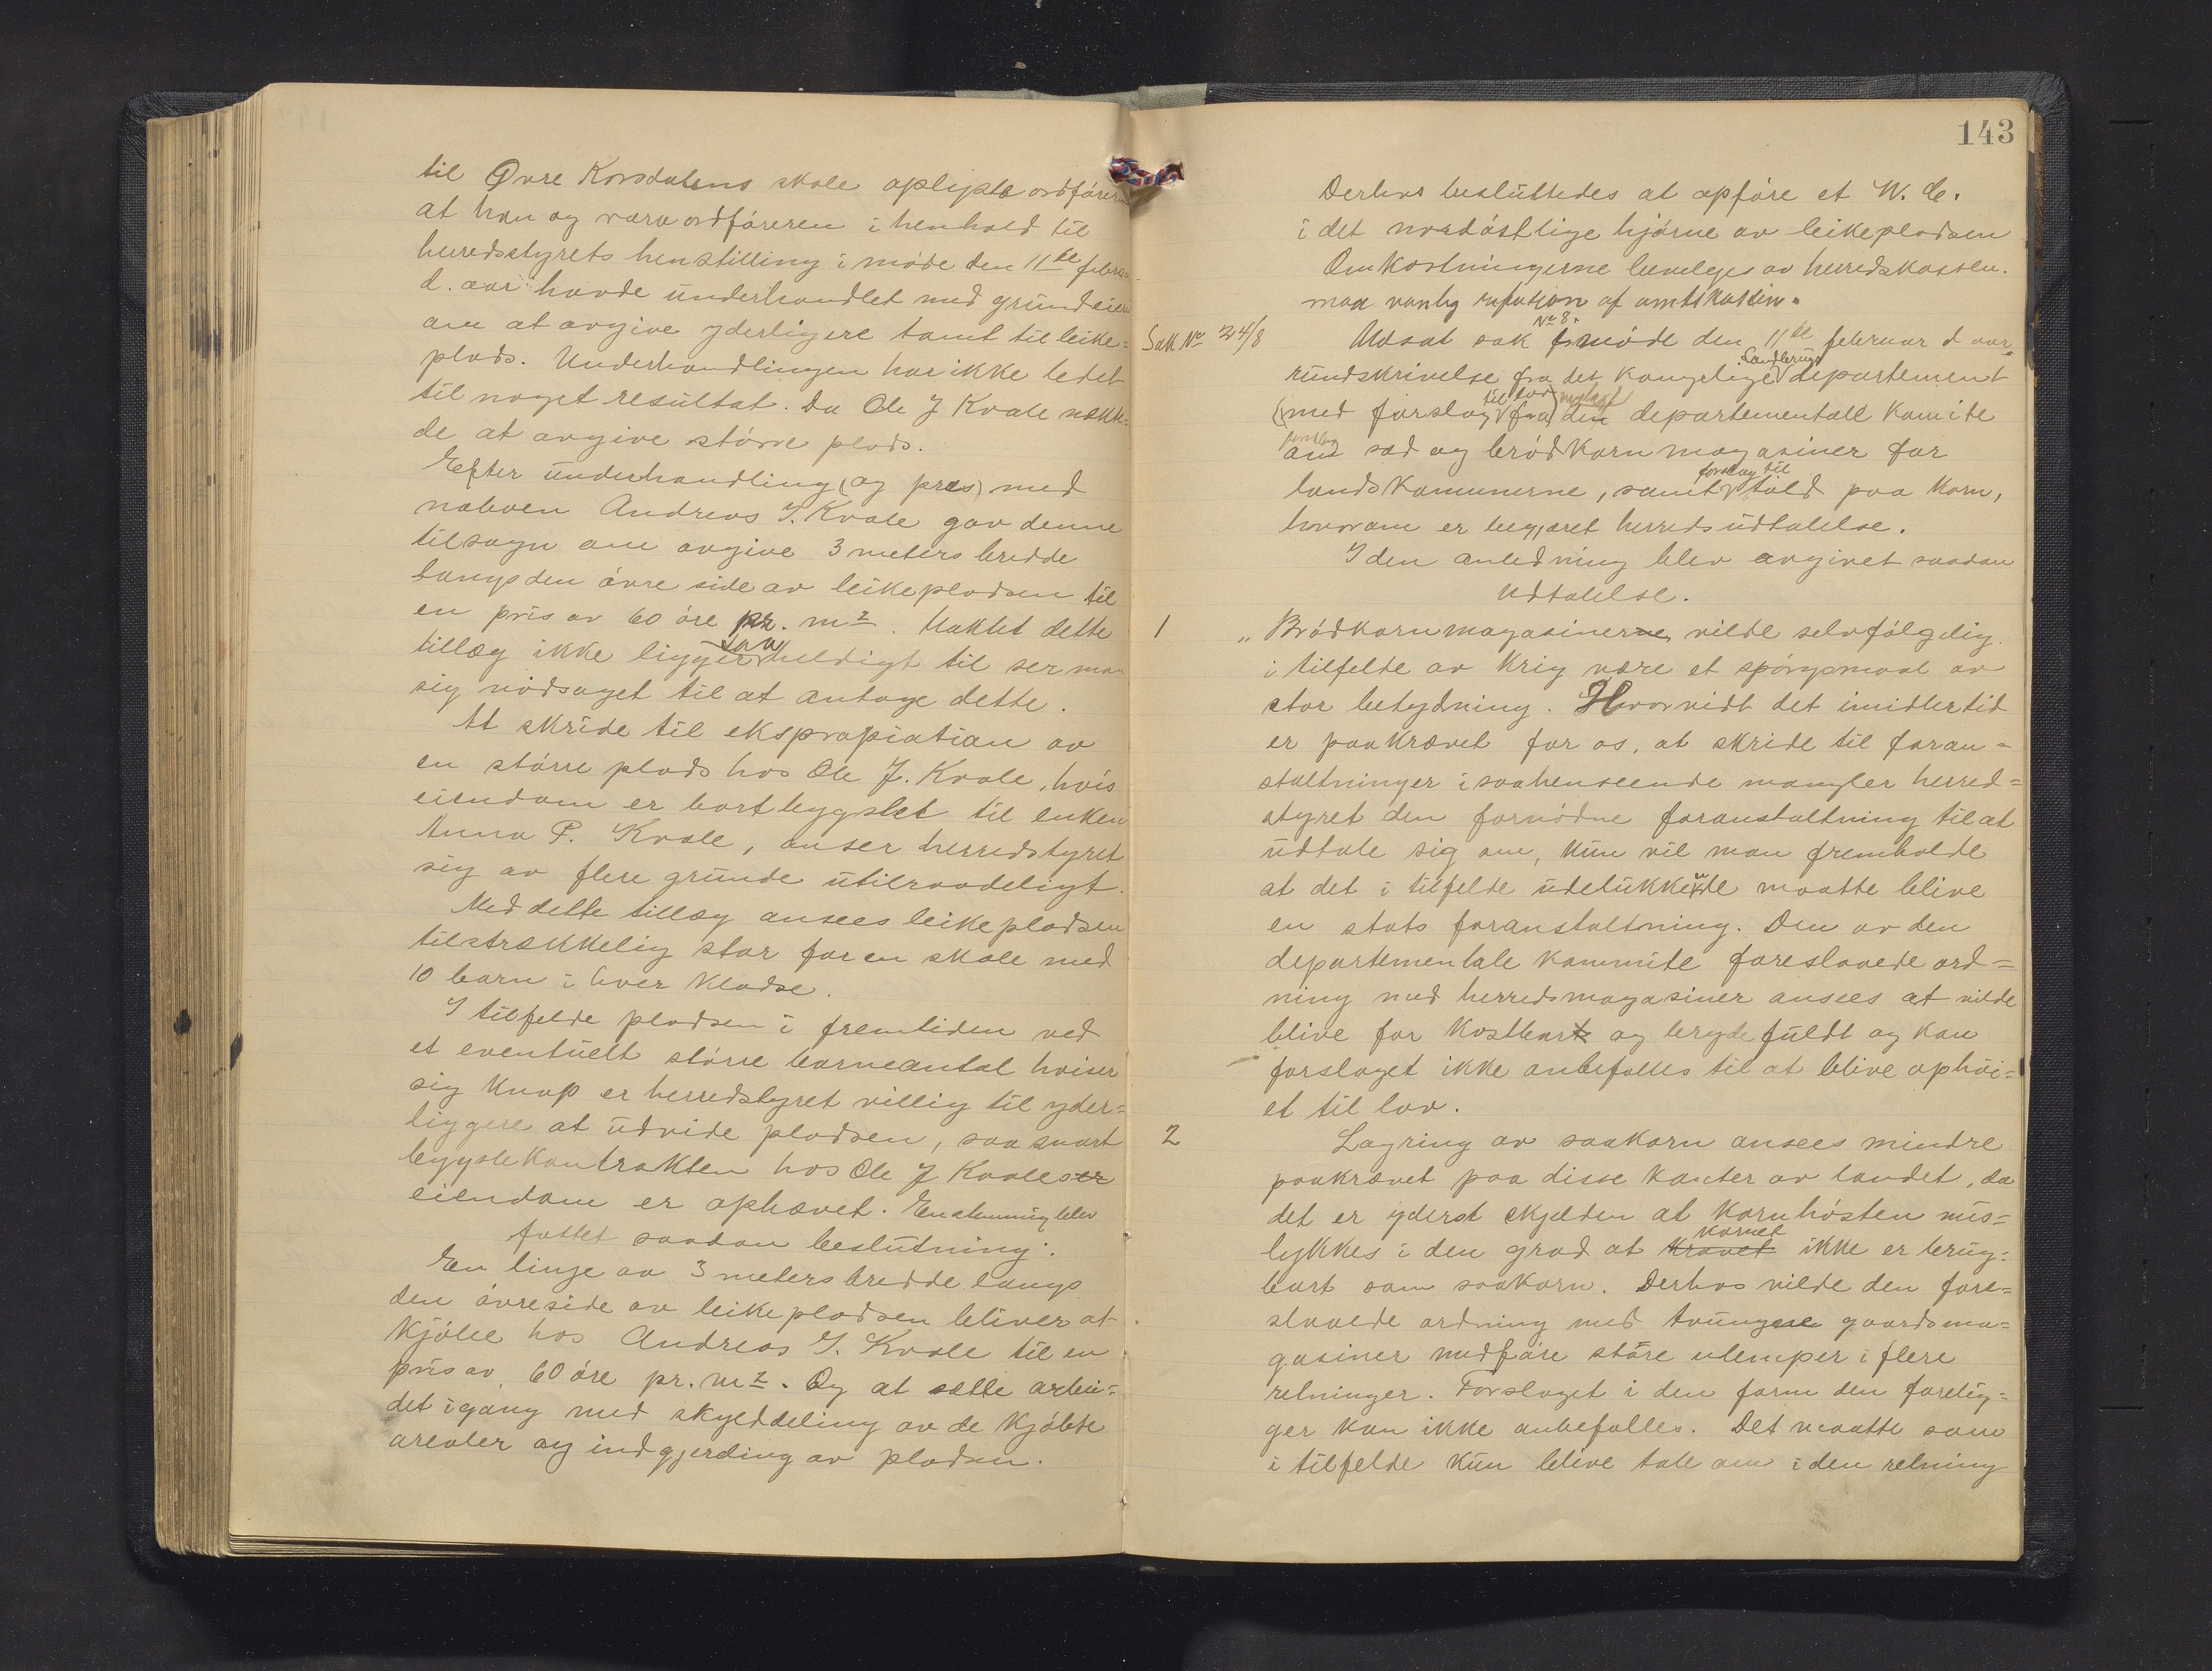 til Øvre Korsdalens skole oplyste ordføreren
at han og varaordføreren i henhold til
herredsstyrets henstilling i møde den 11te februar
d. aar havde underhandlet med grundeieren
om at avgive yderligere tomt til leike-
plads. Underhandlingen har ikke ledet
til noget resultat. Da Ole J Kvale nekte-
de at avgive større plads.
Efter underhandling (og pres) med
naboen Andreas J. Kvale gav denne
tilsagn om avgive 3 meters bredde
langs den øvre side av leikepladsen til
en pris av 60 øre pr. m2. Uaktet dette
tillæg ikke ligger saa heldigt til ser man
sig nødsaget til at antage dette.
At skride til ekspropiation av
en større plads hos Ole J. Kvale, hvis
eiendom er bortbygslet til enken
Anna P. Kvale, anser herredstyret
sig av flere grunde utilraadeligt.
Med dette tillæg ansees leikepladsen
tilstrækkelig stor for en skole med
10 barn i hver kladse.
I tilfelde pladsen i fremtiden ved
et eventuelt større barneantal hviser
sig knap er herredstyret villig til yder=
liggere at udvide pladsen, saa snart
bygslekontrakten hos Ole J Kvales
eiendom er ophævet. Enstemmig blev
fattet saadan beslutning:
En linje av 3 meters bredde langs
den øvreside av leikepladsen bliver at
kjøbe hos Andreas J. Kvale til en
pris av 60 øre pr. m2. Og at sætte arbei=
det igang med skylddeling av de kjøbte
arealer og indgjerding av pladsen.
143
Derhos besluttedes at opføre et W. C.
i det nordøstlige hjørne av leikepladsen
Omkostningerne bevelges av herredskassen.
moa vanlig refusion af amtskassen.
Sak No 24/8
Udsat sak No 8. fra møde den 11te februar d aar.
rundskrivelse fra det kongelige Landbrugs departement
(med forslag til lov fra den departementale komite
om sæd og brødkornmagasiner for
landskomunerne, samt forslag til told paa korn,
hvorom er begjæret herreds udtalelse.
I den anledning blev avgivet saadan
Udtalelse.
1
„ Brødkornmagasinerne vilde selvfølgelig
i tilfelde av krig være et spørgsmaal av
stor betydning. Hvorvidt det imidlertid
er paakrævet for os, at skride til foran=
staltninger i saahenseende mangler herred=
styret den fornødne foranstaltning til at
udtale sig om, kun vil man fremholde
at det i tilfelde udelukkende maatte blive
en stats foranstaltning. Den av den
departementale kommite foreslaaede ord=
ning med herredsmagasiner ansees at vilde
blive for kostbart og brydefuldt og kan
forslaget ikke anbefalles til at blive ophøi=
et til lov.
2
Lagring av saakorn ansees mindre
paakrævet paa disse kanter av landet, da
det er yderst skjelden at kornhøsten mis=
lykkes i den grad at kravet kornet ikke er brug=
bart som saakorn. Derhos vilde den fore=
slaaede ordning med tvungne gaardsma=
gasiner medføre støre ulemper i flere
retninger. Forslaget i den form den forelig=
ger kan ikke anbefalles. Det maatte som
i tilfelde kun blive tale om i den retning